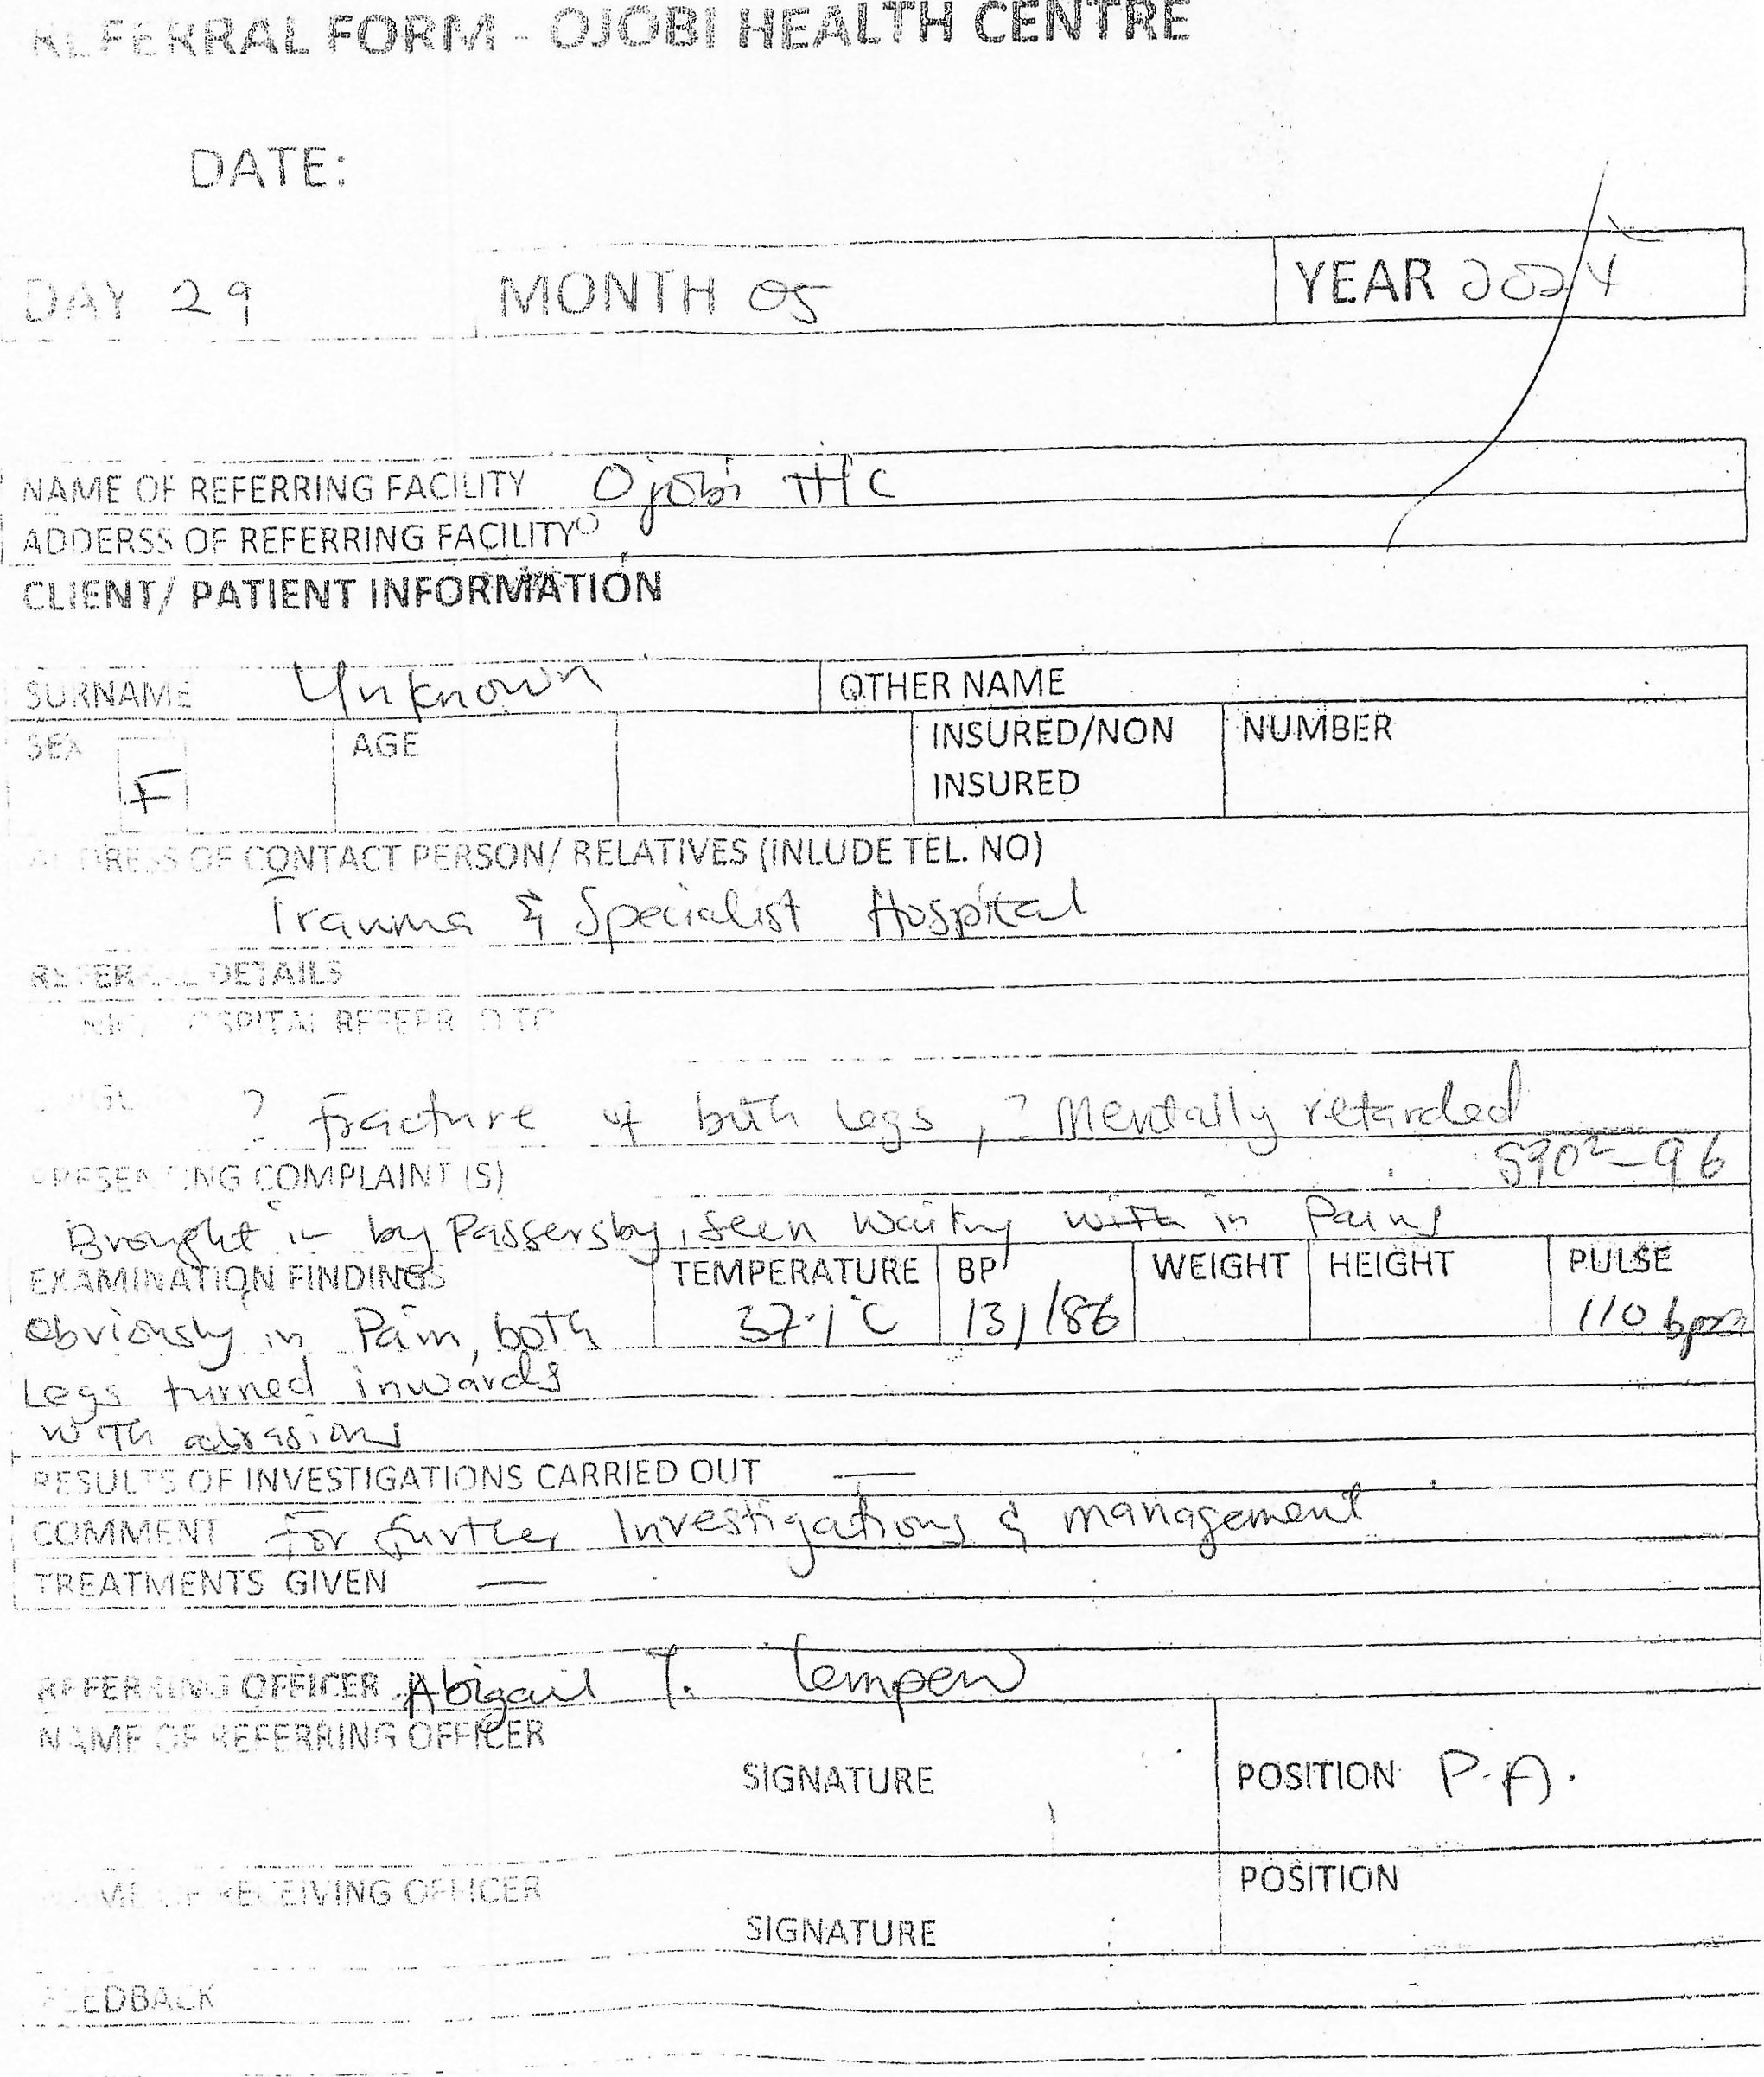 REFERRAL FORM - OJOBI HEALTH CENTRE
DATE:
DAY 29 MONTH 05 YEAR 2024
NAME OF REFERRING FACILITY Ojobi H/C
ADDERSS OF REFERRING FACILITY
CLIENT/ PATIENT INFORMATION
SURNAME Unknown OTHER NAME
SEX F AGE INSURED/NON INSURED NUMBER
ADDRESS OF CONTACT PERSON/ RELATIVES (INLUDE TEL. NO)
Trauma & Specialist Hospital
REFERRAL DETAILS
HOSPITAL REFERRED TO
? fracture of both legs, ? Mentally retarded
SPO2-96
PRESENTING COMPLAINT (S)
Brought in by Passersby, seen with in Pains
EXAMINATION FINDINGS TEMPERATURE BP WEIGHT HEIGHT PULSE
Obviously in Pain, both 37.1°C 131/86 110 bpm
Legs turned inwards
with abrasions
RESULTS OF INVESTIGATIONS CARRIED OUT —
COMMENT For further Investigations & management
TREATMENTS GIVEN —
REFERRING OFFICER Abigail T.
NAME OF REFERRING OFFICER
SIGNATURE POSITION P.A.
NAME OF RECEIVING OFFICER POSITION
SIGNATURE
FEEDBACK